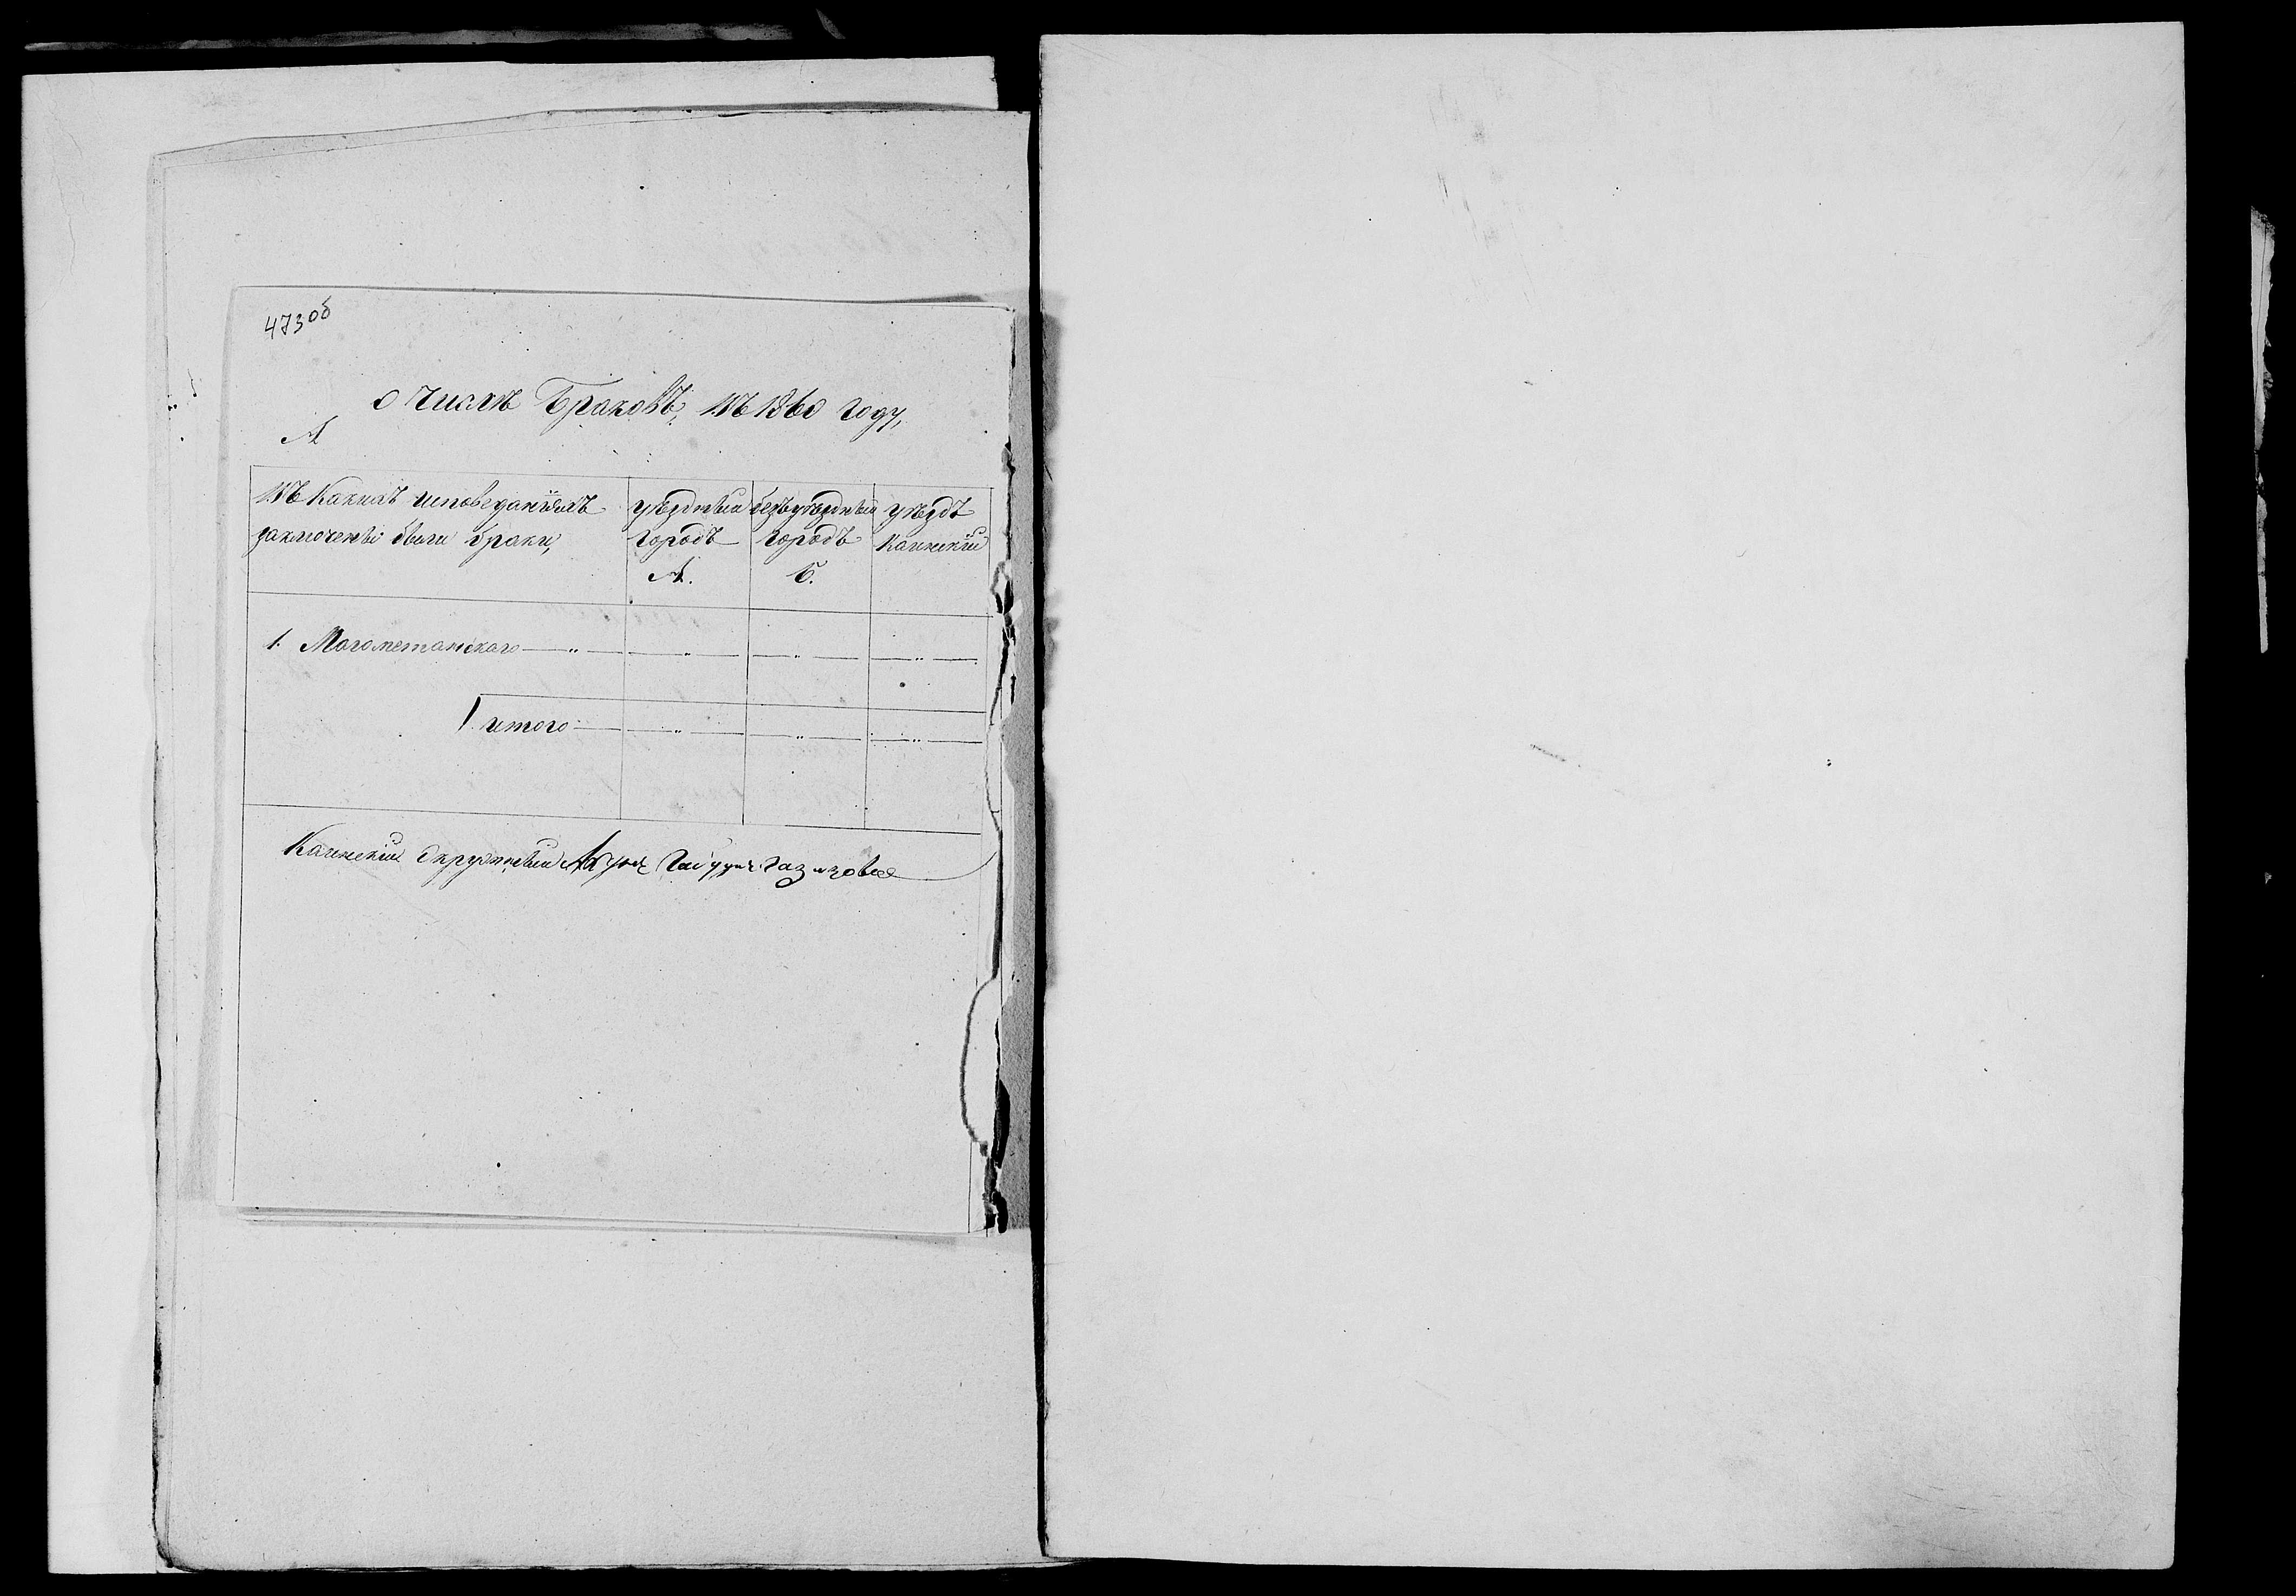 473об
О числѣ Браковъ, въ 1860 году,
А
Въ Какихъ исповеданіяхъ
заключены были браки,
уѣздный
городъ
А.
безъуѣздный
городъ
Б.
уѣздъ
Каинскій
1. Магометанскаго — " — — " — — " — — " —
итого — — " — — " — — " —
Каинскій Окружный Ахунъ